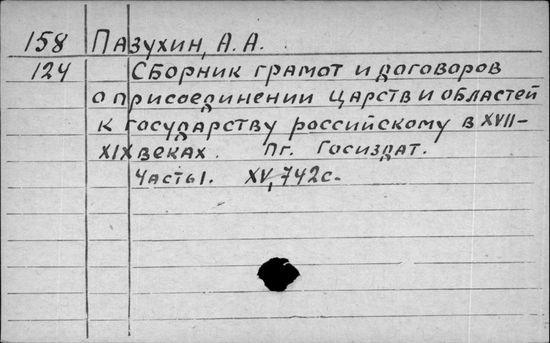 158 Пазухин, А. А.
124 Сборник грамот и договоров
о присоединении царств и областей
к государству российскому в XVII-
XIX веках. Пг. Госиздат.
Часть I. XV, 742 с.